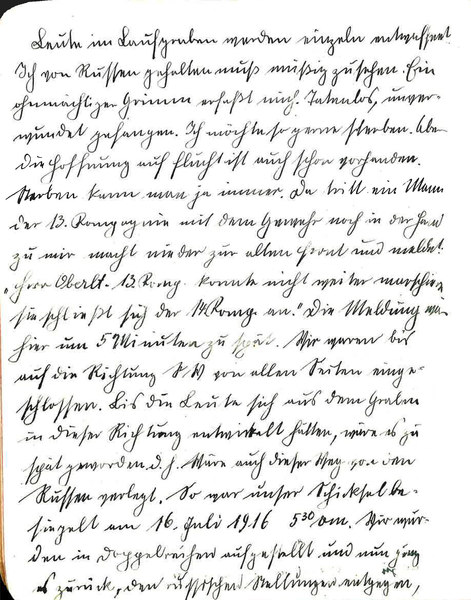 Leute im Laufgraben werden einzeln entwaffnet
Ich von Russen gehalten muß müßig zusehen. Ein
ohnmächtiger Grimm erfaßt mich. Tatenlos, unver-
wundet gefangen. Ich möchte so gerne sterben. Aber
die Hoffnung auf Flucht ist auch schon vorhanden.
Sterben kann man ja immer. Da tritt ein Mann
der 13. Kompagnie mit dem Gewehr noch in der Hand
zu mir macht nieder zur alten Front und meldet:
"Herr Oberlt. 13. Komp. konnte nicht weiter marschie-
sie schließt sich der 14 Komp. an." Die Meldung war
hier um 5 Minuten zu spät. Wir waren bis
auf die Richtung SW von allen Seiten einge-
schlossen. Bis die Leute sich aus dem Graben
in dieser Richtung entwickelt hätten, wäre es zu
spät geworden d. h. wäre auch dieser Weg von den
Russen verlegt. So war unser Schicksal be-
siegelt am 16. Juli 1916 5 30 vm. Wir wur-
den in Doppelreihen aufgestellt und nun ging
es zurück, den russischen Stellungen entgegen,